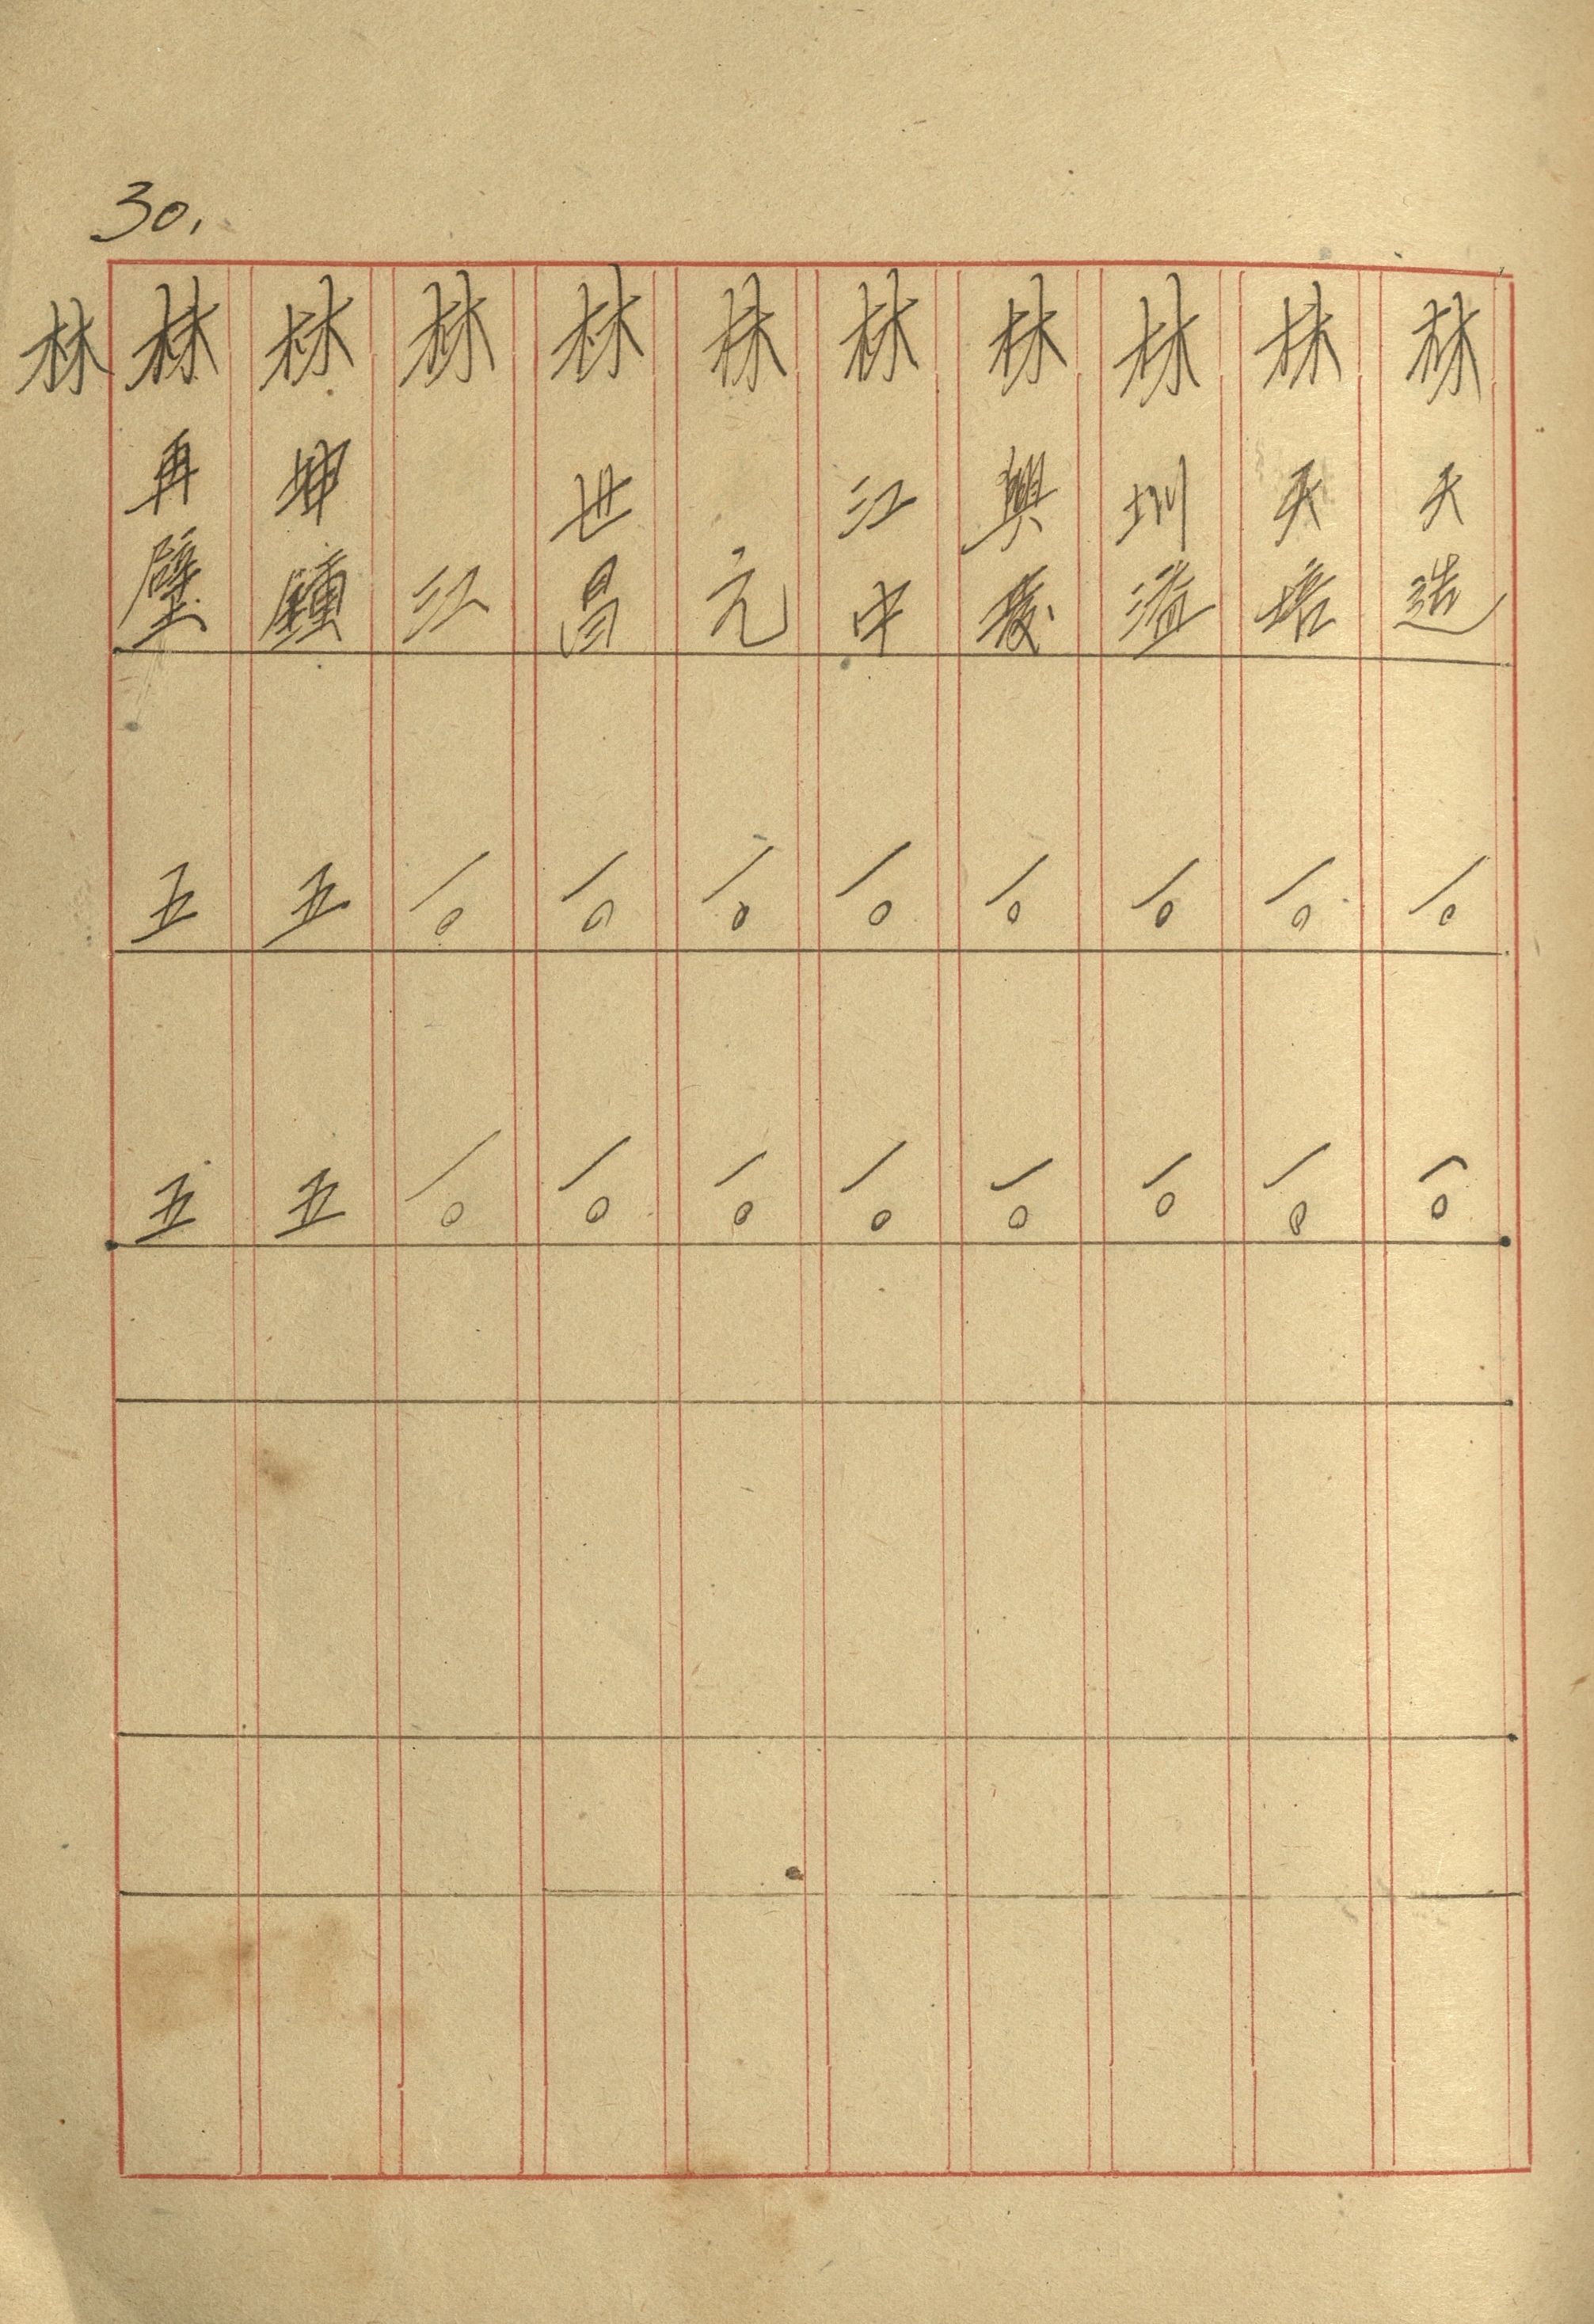 30.
林天造 一〇 一〇
林天培 一〇 一〇
林圳溢 一〇 一〇
林興發 一〇 一〇
林江中 一〇 一〇
林元 一〇 一〇
林世昌 一〇 一〇
林江 一〇 一〇
林坤鍾 五 五
林再壁 五 五
林